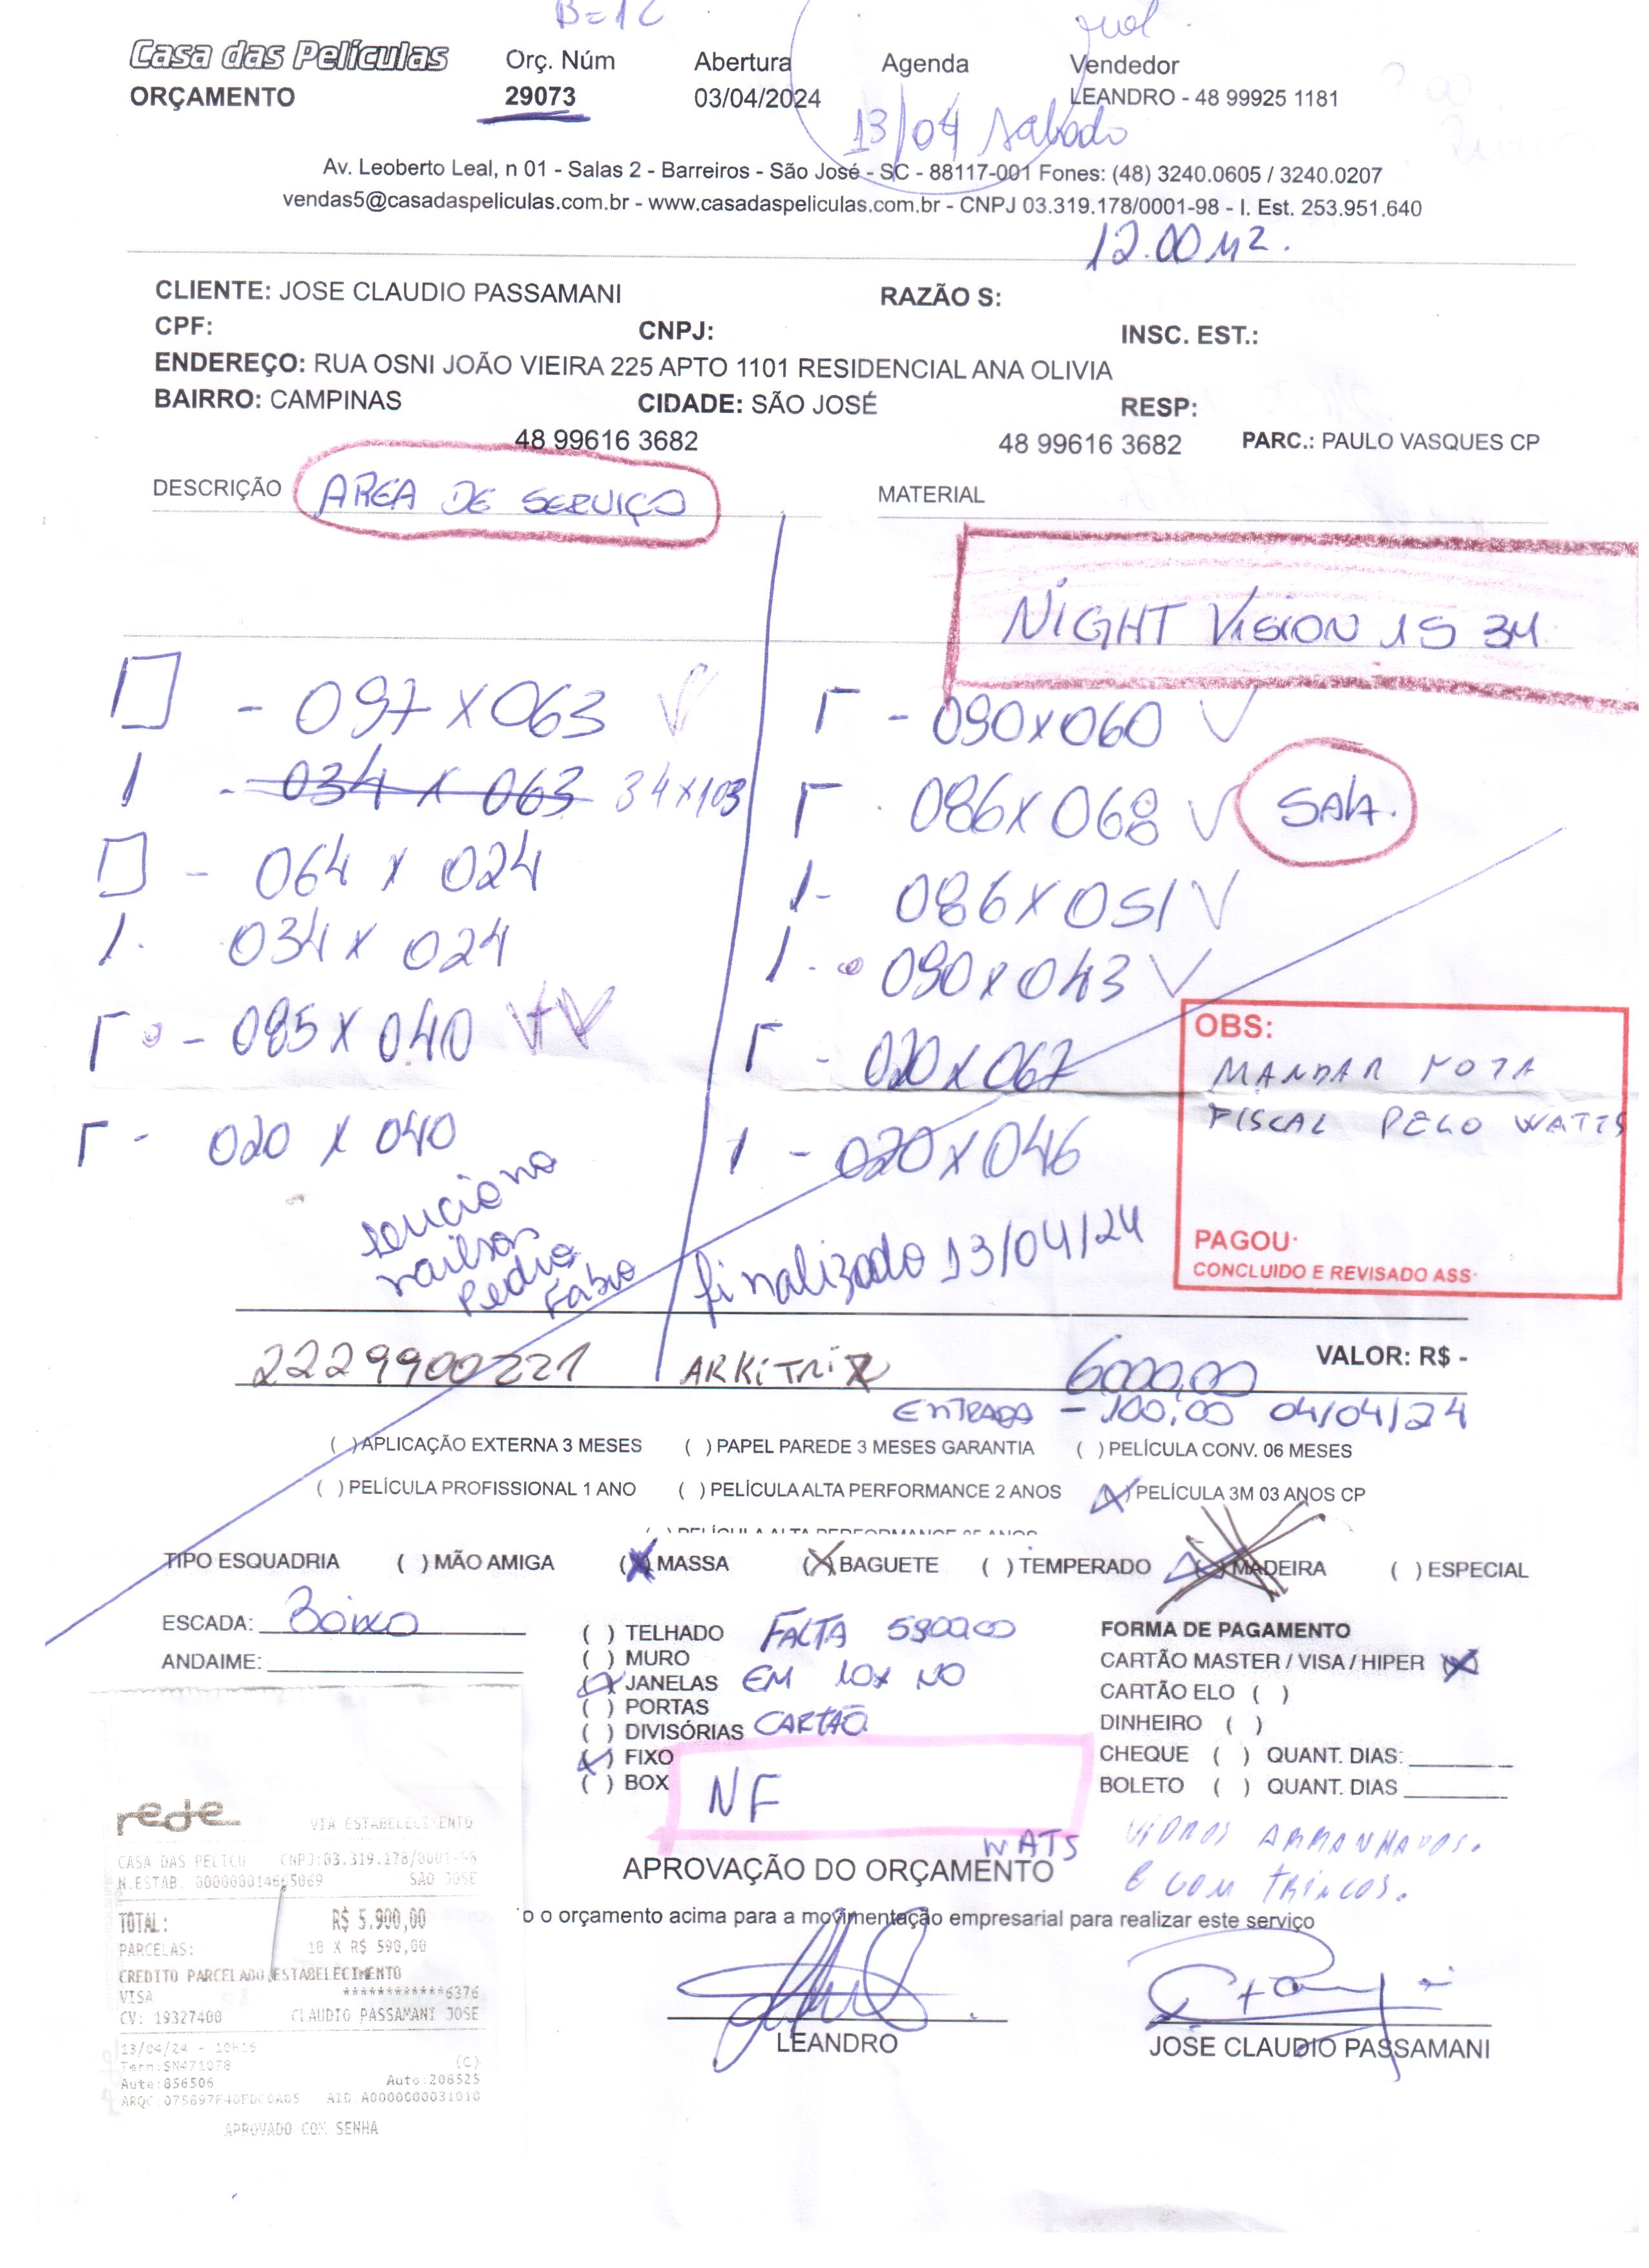 B=1C
Casa das Películas Orç. Núm Abertura Agenda Vendedor
ORÇAMENTO 29073 03/04/2024 LEANDRO - 48 99925 1181
13/04 sabado
Av. Leoberto Leal, n 01 - Salas 2 - Barreiros - São José - SC - 88117-001 Fones: (48) 3240.0605 / 3240.0207
vendas5@casadaspeliculas.com.br - www.casadaspeliculas.com.br - CNPJ 03.319.178/0001-98 - I. Est. 253.951.640
12.00 M2.
CLIENTE: JOSE CLAUDIO PASSAMANI RAZÃO S:
CPF: CNPJ: INSC. EST.:
ENDEREÇO: RUA OSNI JOÃO VIEIRA 225 APTO 1101 RESIDENCIAL ANA OLIVIA
BAIRRO: CAMPINAS CIDADE: SÃO JOSÉ RESP:
48 99616 3682 48 99616 3682 PARC.: PAULO VASQUES CP
DESCRIÇÃO AREA DE SERVIÇO MATERIAL
NIGHT VISION 15 3M
- 097 x 063
- 034 x 063 34x103
- 064 x 024
034 x 024
- 085 x 040
- 020 x 040
- 090x060
086x068 SALA.
- 086x051
090x043
- 020x067
- 020x046
OBS:
MANDAR NOTA
FISCAL PELO WATTS
PAGOU:
CONCLUIDO E REVISADO ASS:
Luciano
Pedro
Fabio
finalizado 13/04/24
2229900221 ARKITRIZ 6000,00 VALOR: R$ -
ENTRADA - 100,00 04/04/24
( ) APLICAÇÃO EXTERNA 3 MESES ( ) PAPEL PAREDE 3 MESES GARANTIA ( ) PELÍCULA CONV. 06 MESES
( ) PELÍCULA PROFISSIONAL 1 ANO ( ) PELÍCULA ALTA PERFORMANCE 2 ANOS (X) PELÍCULA 3M 03 ANOS CP
( ) PELÍCULA ALTA PERFORMANCE 05 ANOS
TIPO ESQUADRIA ( ) MÃO AMIGA (X) MASSA (X) BAGUETE ( ) TEMPERADO ( ) MADEIRA ( ) ESPECIAL
ESCADA: Baixo
ANDAIME:
( ) TELHADO
( ) MURO
(X) JANELAS
( ) PORTAS
( ) DIVISÓRIAS
(X) FIXO
( ) BOX
FALTA 5900,00
EM 10x NO
CARTÃO
NF
WATS
FORMA DE PAGAMENTO
CARTÃO MASTER / VISA / HIPER (X)
CARTÃO ELO ( )
DINHEIRO ( )
CHEQUE ( ) QUANT. DIAS:
BOLETO ( ) QUANT. DIAS
VIDROS ARRANHADOS.
E COM TRINCOS.
APROVAÇÃO DO ORÇAMENTO
o o orçamento acima para a movimentação empresarial para realizar este serviço
LEANDRO JOSE CLAUDIO PASSAMANI
rede
VIA ESTABELECIMENTO
CASA DAS PELICU CNPJ:03.319.178/0001-98
N.ESTAB. 000000014665069 SAO JOSE
TOTAL: R$ 5.900,00
PARCELAS: 10 X R$ 590,00
CREDITO PARCELADO ESTABELECIMENTO
VISA ************6376
CV: 19327400 CLAUDIO PASSAMANI JOSE
13/04/24 - 10H16
Term:SN471078 (C)
Aute:856506 Auto:206525
AID A0000000031010
APROVADO COM SENHA